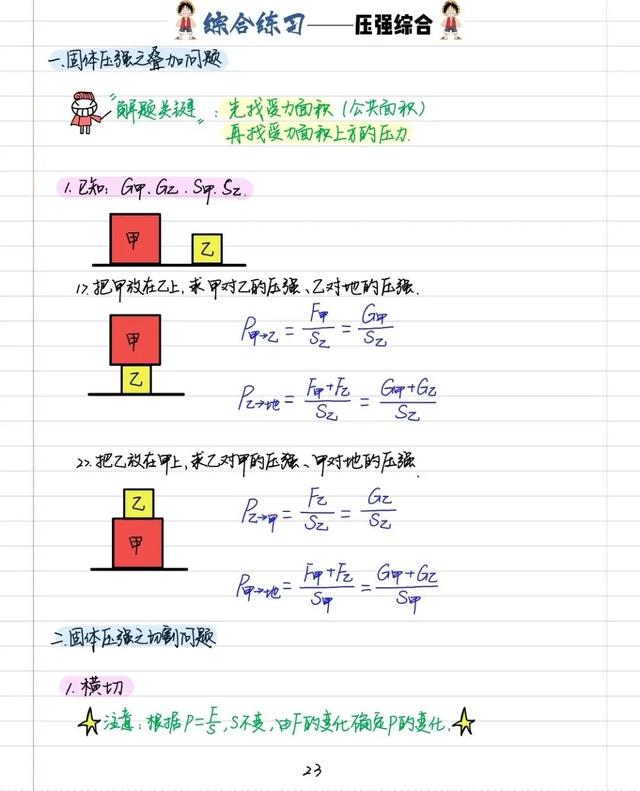 综合练习——压强综合
一.固体压强之叠加问题
"解题关键":先找受力面积(公共面积)
再找受力面积上方的压力.
1.已知:G甲、G乙、S甲、S乙.
甲 乙
1>.把甲放在乙上,求甲对乙的压强、乙对地的压强.
甲
乙
P甲→乙 = F甲/S乙 = G甲/S乙
P乙→地 = (F甲+F乙)/S乙 = (G甲+G乙)/S乙
2>.把乙放在甲上,求乙对甲的压强、甲对地的压强.
乙
甲
P乙→甲 = F乙/S乙 = G乙/S乙
P甲→地 = (F甲+F乙)/S甲 = (G甲+G乙)/S甲
二.固体压强之切割问题
1.横切
注意:根据P=F/S,S不变,由F的变化确定P的变化.
23